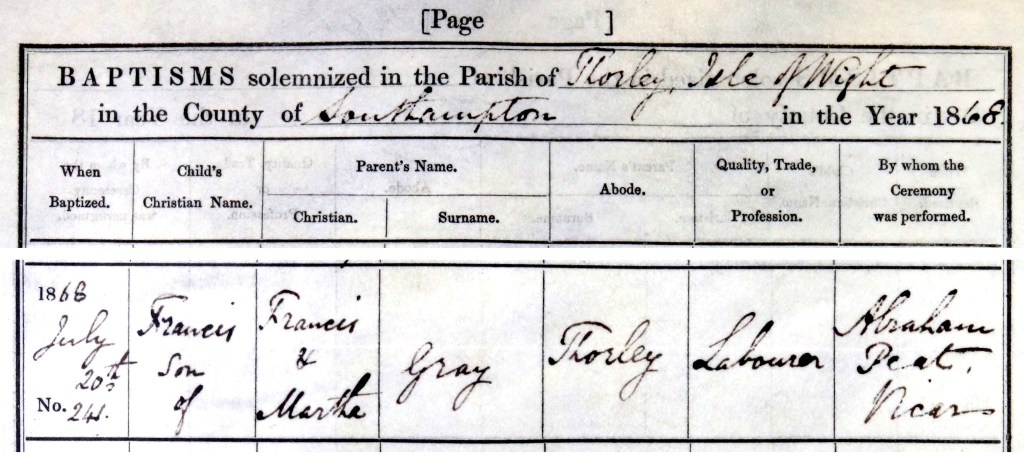 [Page ]
BAPTISMS solemnized in the Parish of Thorley, Isle of Wight
in the County of Southampton in the Year 1868.
When Baptized.
Child's Christian Name.
Parent's Name.
Christian.
Surname.
Abode.
Quality, Trade, or Profession.
By whom the Ceremony was performed.
1868
July
20th
No. 241.
Francis
Son
of
Francis
&
Martha
Gray
Thorley
Labourer
Abraham
Peat,
Vicar